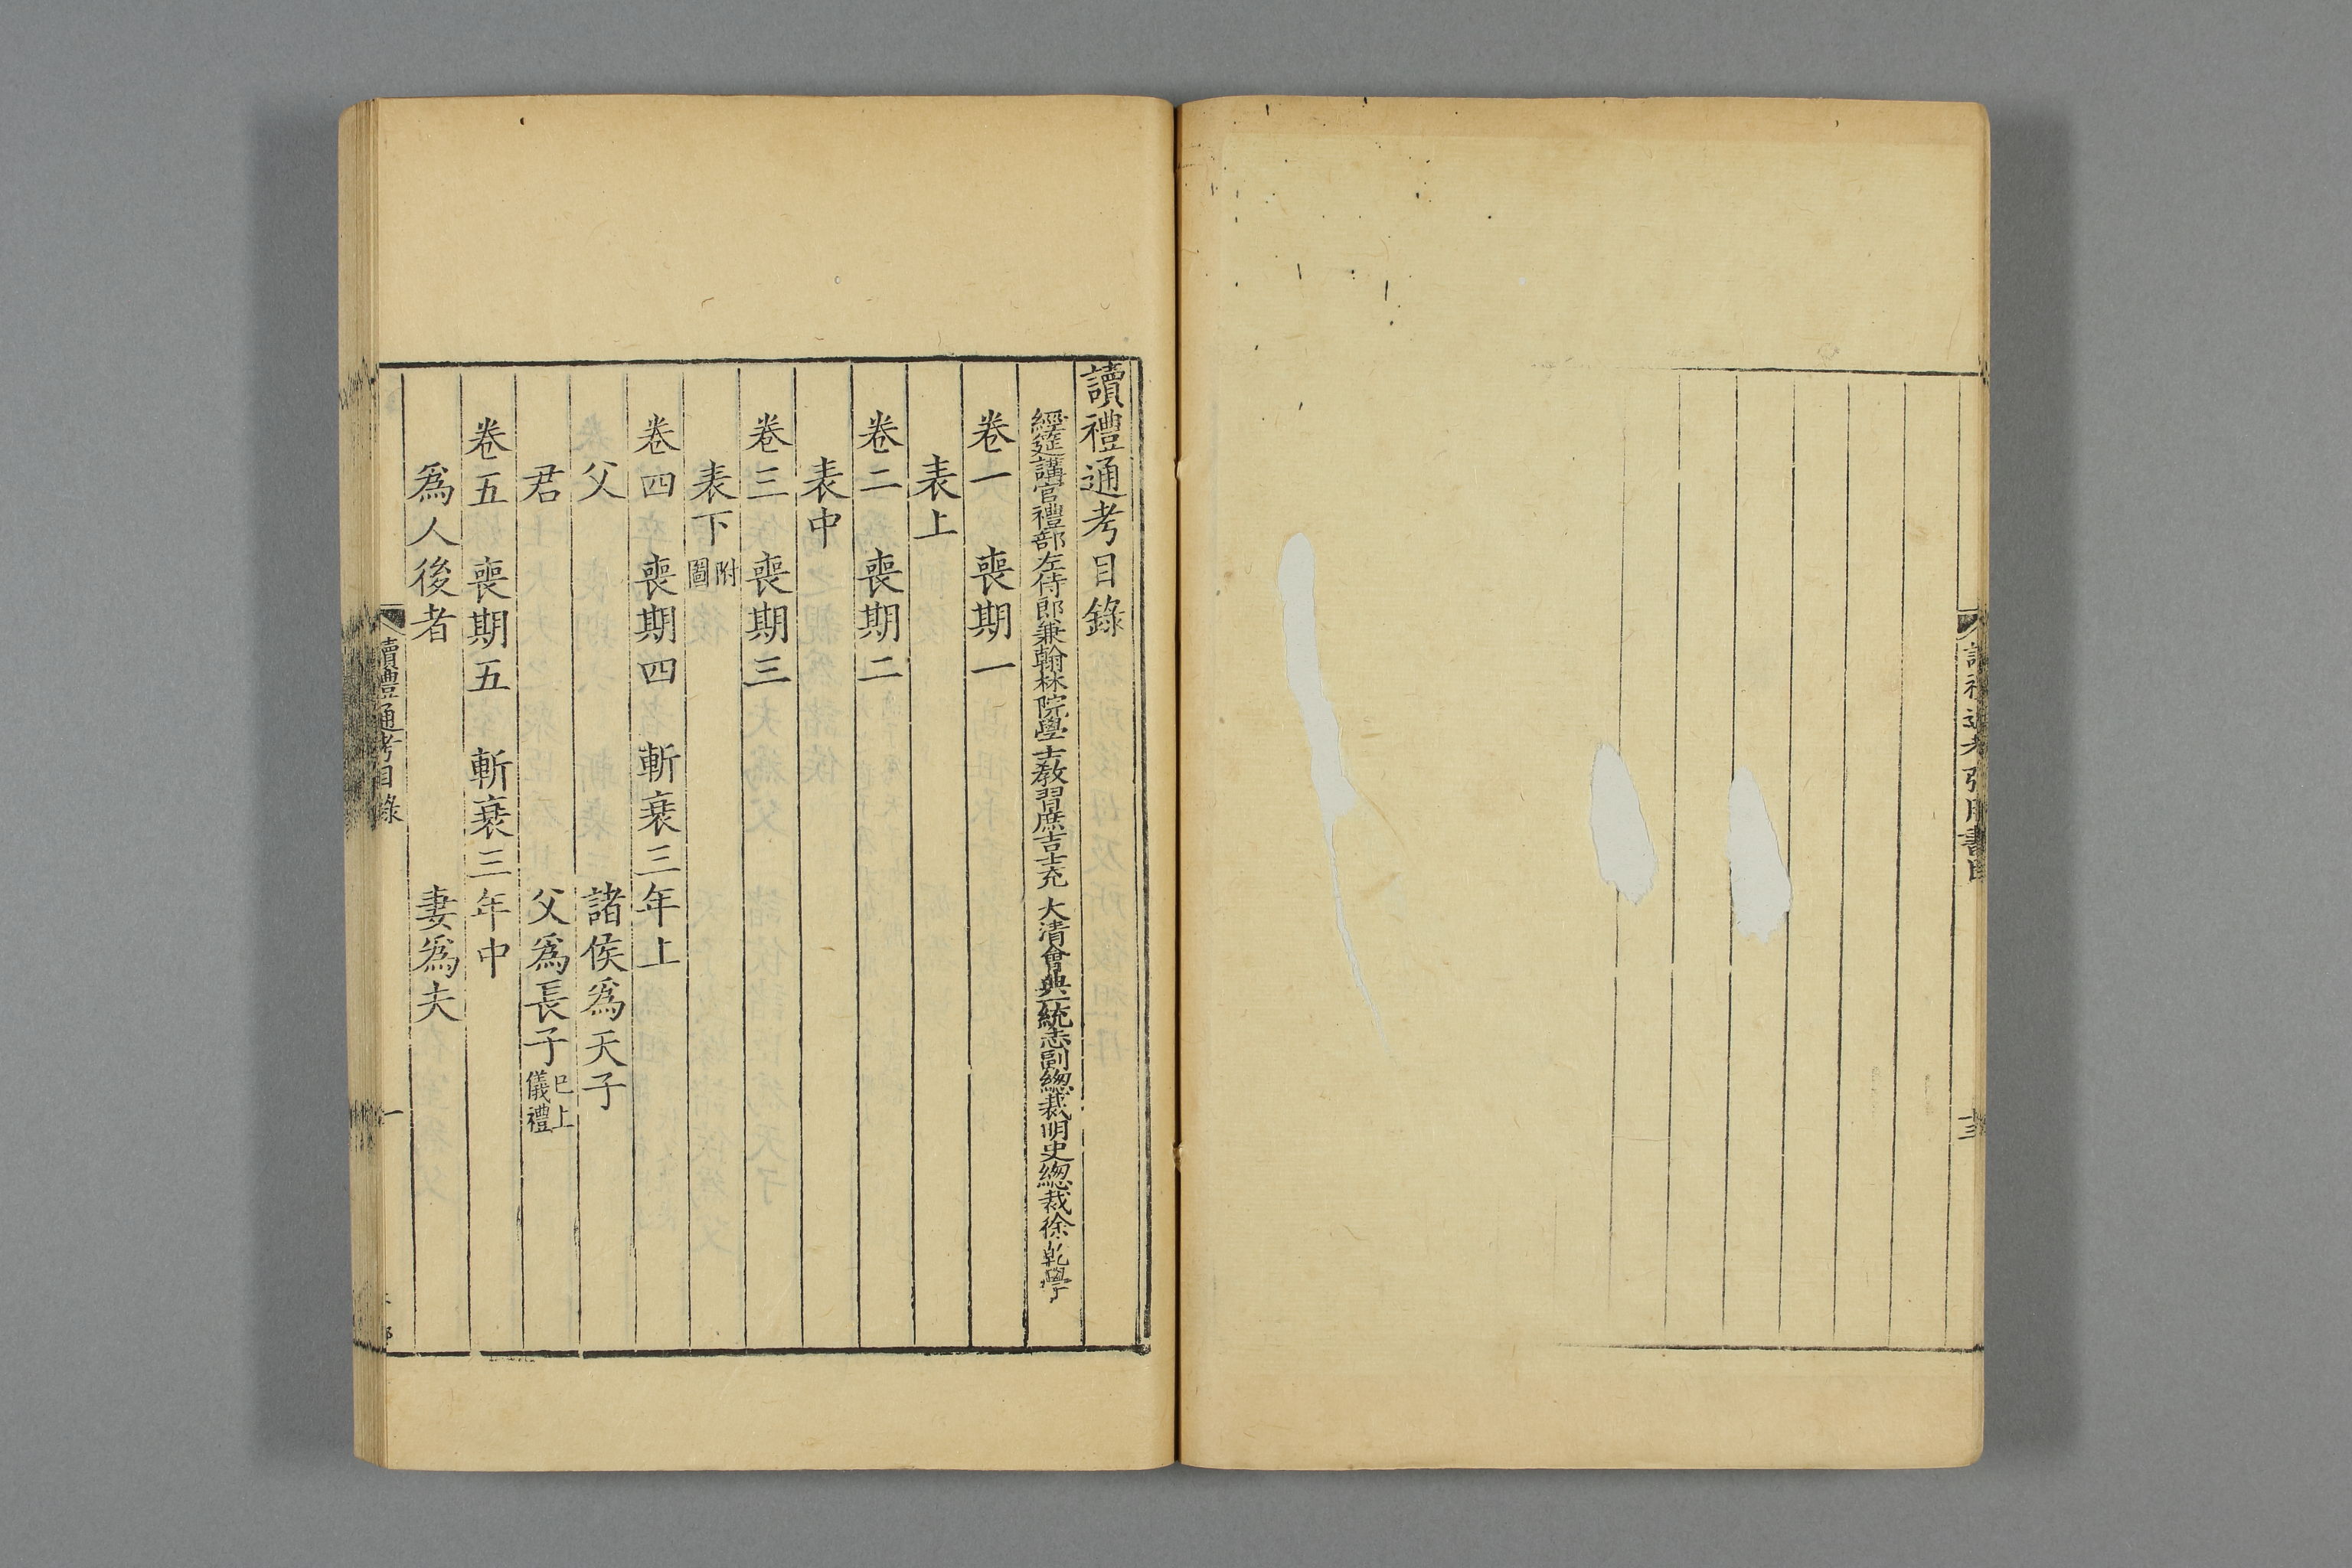 讀禮通考引用書目
十三
讀禮通考目錄
經筵講官禮部左侍郎兼翰林院學士教習庶吉士充 大清會典一統志副緫裁明史緫裁徐乾學
卷一 喪期一
表上
卷二 喪期二
表中
卷三 喪期三
表下 附圖
卷四 喪期四 斬衰三年上
父 諸侯爲天子
君 父爲長子 已上儀禮
卷五 喪期五 斬衰三年中
爲人後者 妻爲夫
讀禮通考目錄
一